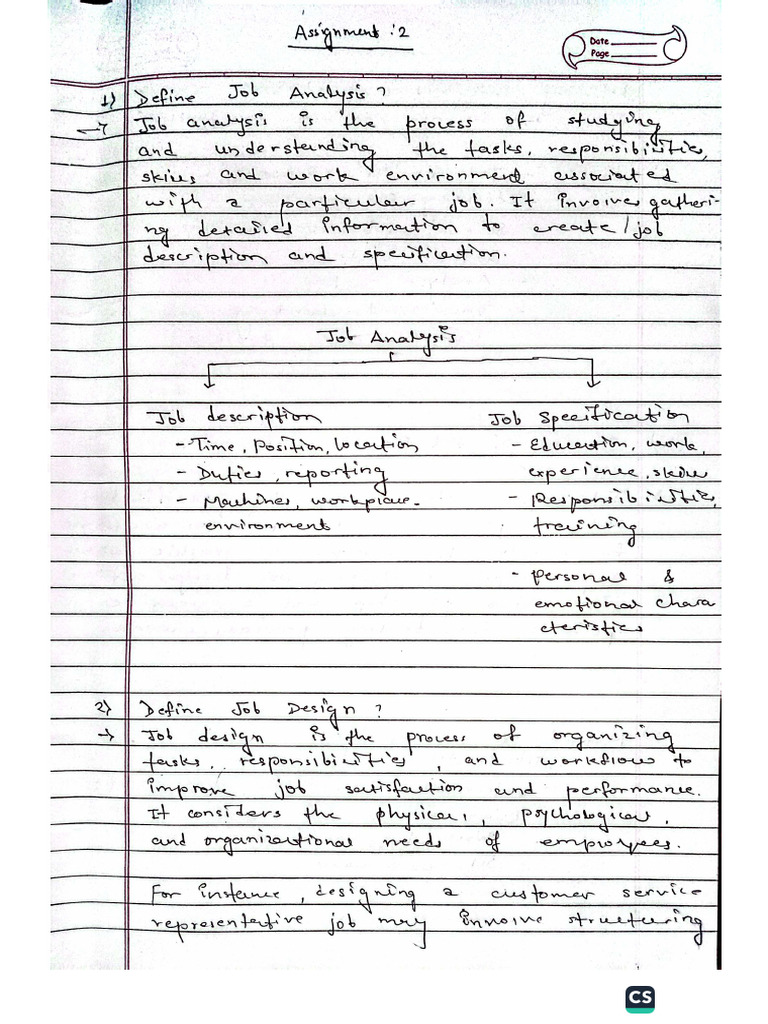 Assignment : 2
Date
Page
1) Define Job Analysis ?
→ Job analysis is the process of studying
and understanding the tasks, responsibilities,
skills, and work environment associated
with a particular job. It involves gatheri-
ng detailed information to create/job
description and specification.
Job Analysis
Job description
- Time, Position, location
- Duties, reporting
- Machines, workplace
environment
Job Specification
- Education, work,
experience, skills
- Responsibilities,
training
- Personal &
emotional chara
cteristics
2) Define Job Design ?
→ Job design is the process of organizing
tasks, responsibilities, and workflow to
improve job satisfaction and performance.
It considers the physical, psychological,
and organizational needs of employees.
For instance, designing a customer service
representative job may involve structuring
CS